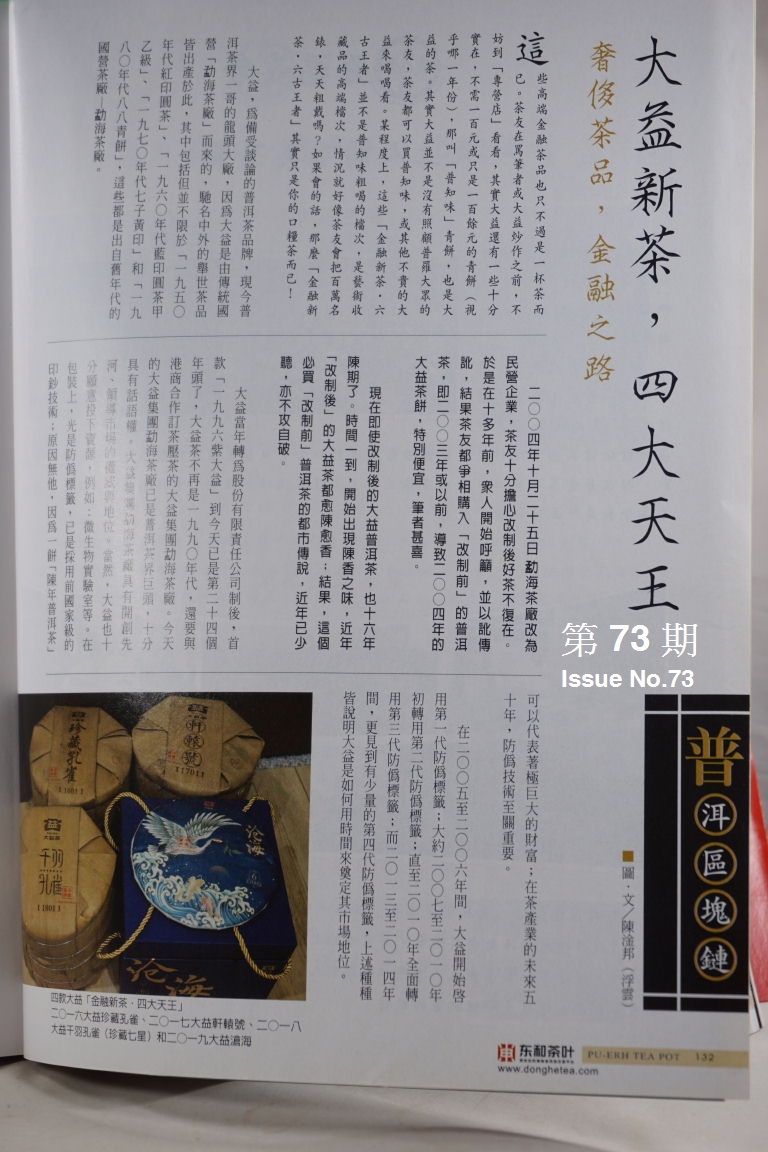 大益新茶，四大天王
奢侈茶品，金融之路
這些高端金融茶品也只不過是一杯茶而
已。茶友在罵筆者或大益炒作之前，不
妨到「專營店」看看，其實大益還有一些十分
實在，不需一百元或只是一百餘元的青餅（視
乎哪一年份），那叫「普知味」青餅，也是大
益的茶。其實大益並不是沒有照顧普羅大眾的
茶友，茶友都可以買普知味，或其他不貴的大
益來喝喝看。某程度上，這些「金融新茶．六
古王者」並不是普知味粗喝的檔次，是藝術收
藏品的高端檔次，情況就好像茶友會把百萬名
錶，天天粗戴嗎？如果會的話，那麼「金融新
茶．六古王者」其實只是你的口糧茶而已！
大益，為備受談論的普洱茶品牌，現今普
洱茶界一哥的龍頭大廠，因為大益是由傳統國
營「勐海茶廠」而來的，馳名中外的舉世茶品
皆出產於此，其中包括但並不限於「一九五〇
年代紅印圓茶」、「一九六〇年代藍印圓茶甲
乙級」、「一九七〇年代七子黃印」和「一九
八〇年代八八青餅」，這些都是出自舊年代的
國營茶廠—勐海茶廠。
二〇〇四年十月二十五日 勐海茶廠改為
民營企業，茶友十分擔心改制後好茶不復在。
於是在十多年前，衆人開始呼籲，並以訛傳
訛，結果茶友都爭相購入「改制前」的普洱
茶，即二〇〇三年或以前，導致二〇〇四年的
大益茶餅，特別便宜，筆者甚喜。
現在即使改制後的大益普洱茶，也十六年
陳期了。時間一到，開始出現陳香之味，近年
「改制後」的大益茶都愈陳愈香；結果，這個
必買「改制前」普洱茶的都市傳說，近年已少
聽，亦不攻自破。
大益當年轉為股份有限責任公司制後，首
款「一九九六紫大益」到今天已是第二十四個
年頭了，大益茶不再是一九九〇年代，還要與
港商合作訂茶壓茶的大益集團勐海茶廠。今天
的大益集團勐海茶廠已是普洱茶界巨頭，十分
具有話語權。大益集團勐海茶廠具有開創先
河、領導市場的權級與地位。當然，大益也十
分願意投下資源，例如：微生物實驗室等。在
包裝上，光是防偽標籤，已是採用前國家級的
印鈔技術；原因無他，因為一餅「陳年普洱茶」
可以代表著極巨大的財富；在茶產業的未來五
十年，防偽技術至關重要。
在二〇〇五至二〇〇六年間，大益開始啓
用第一代防偽標籤；大約二〇〇七至二〇一〇年
初轉用第二代防偽標籤；直至二〇一〇年全面轉
用第三代防偽標籤；而二〇一三至二〇一四年
間，更見到有少量的第四代防偽標籤，上述種種
皆說明大益是如何用時間來奠定其市場地位。
第 73 期
Issue No.73
普洱區塊鏈
■圖．文／陳淦邦（浮雲）
珍藏孔雀
11601
軒轅號
11701
大益
千羽孔雀
11801
滄海
滄海
四款大益「金融新茶．四大天王」
二〇一六大益珍藏孔雀、二〇一七大益軒轅號、二〇一八
大益千羽孔雀（珍藏七星）和二〇一九大益滄海
东和茶叶
www.donghetea.com
PU-ERH TEA POT 132